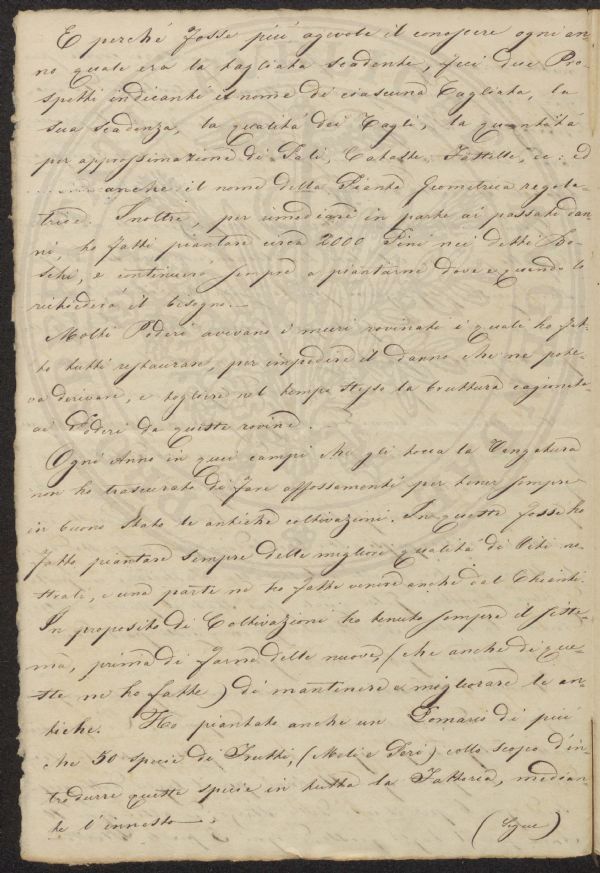 E perché fosse più agevole il conoscere ogni an-
no quale era la tagliata scadente, feci due Pro-
spetti indicanti il nome di ciascuna Tagliata, la
sua scadenza, la qualità dei Tagli, la quantità
per approssimazione di Pali, Cataste, ec: ed
anche il nome della Pianta Geometrica regola-
trice. Inoltre, per rimediare in parte ai passati dan-
ni, ho fatti piantare circa 2000 Pini nei detti Bo-
schi, e continuerò sempre a piantarne dove e quando lo
richiederà il bisogno.
Molti Poderi avevano i muri rovinati i quali ho fat-
to tutti restaurare, per impedire il danno che ne pote-
va derivare, e togliere nel tempo stesso la bruttura cagionata
ai Poderi da queste rovine.
Ogni Anno in quei campi che gli tocca la Vangatura
non ho trascurato di fare affossamenti per tener sempre
in buono stato le antiche coltivazioni. In queste fosse ho
fatto piantare sempre delle migliori qualità di Viti no-
strali, e una parte ne ho fatte venire anche dal Chianti.
In proposito di Coltivazioni ho tenuto sempre il siste-
ma, prima di farne delle nuove, (che anche di que-
ste ne ho fatte) di mantenere e migliorare le an-
tiche. Ho piantato anche un Pomario di più
che 50 specie di Frutti, (Meli e Peri) collo scopo d'in-
trodurre queste specie in tutta la Fattoria, median-
te l'innesto.
(Segue)